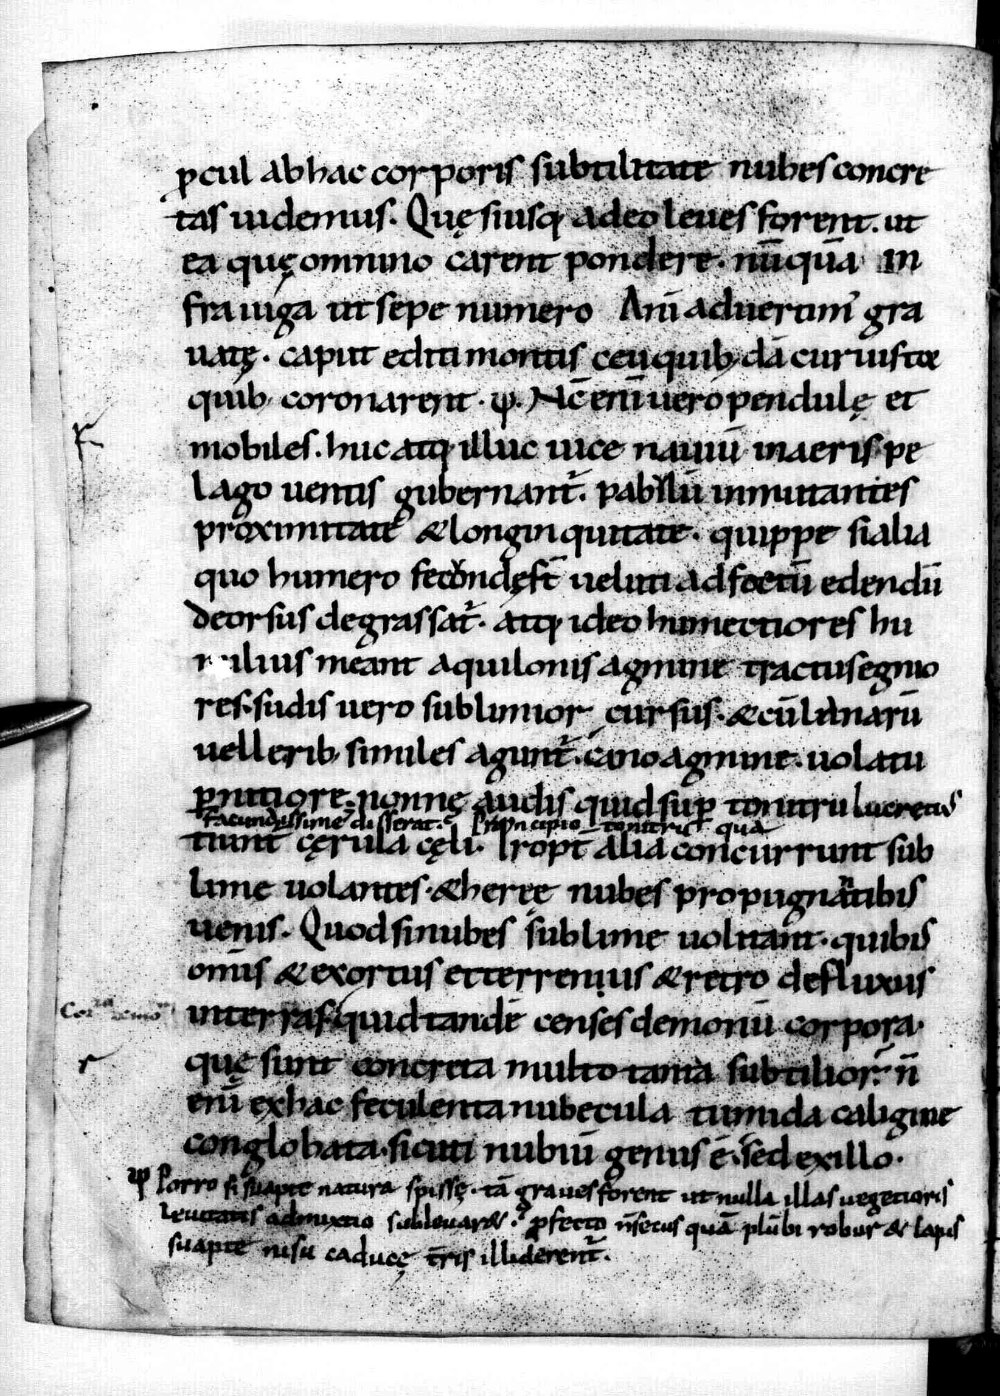 ꝓcul abhac corporis subtilitate nubes concre
tas uidemus. Quę siusꝗ adeo leues forent. ut
ea quę omnino carent pondere. nūquā in
fra iuga ut sepe numero Ani͂aduertim᾽ gra
uatę. caput editi montis ceu quib, dā curuis toꝛ
quib, coronarent. ψ. Nc̄ eni͂ uero pendulę et
mobiles. huc atꝗ illuc uice nauiū inaeris pe
lago uentis gubernant᾽. pabulū inmutantes
proximitate & longinquitate. quippe si alia
quo humero fecundę st̄ ueluti ad foetū edendū
deorsus degrassat᾽. atꝗ ideo humectiores hu
milius meant aquilonis agmine tractu segnio
res. sudis uero sublimior cursus. & cū lanarū
uellerib, similes agunt᾽. cano agmine. uolatu
ꝑnitiore. nonne audis quid suꝑ tonitru lucretius
facundissime disserat. Principio tonitru quā
tiunt cęrula cęli. Propt̄ alia concurrunt sub
lime uolantes. &hereę nubes propugnantibus
uenis. Quod si nubes sublime uolitant. quibus
omīs & exortus et terrenius & retro defluxus
interras. quid tandē censes demoniū corpora.
quę sunt concreta multo tanta subtilior᾽. n̄
eni͂ exhac feculenta nubecula tumida caligine
conglobata. sicuti nubiū genus ē. sed exillo.
ψ Porro si suapte natura spissę. tā graues forent ut nulla illas uegetioris
leuitatis admixtio subleuar&. ꝓfecto n̄secus quā plūbi robur & lapis
suapte nisu caducę tr̄is illiderent᾽.